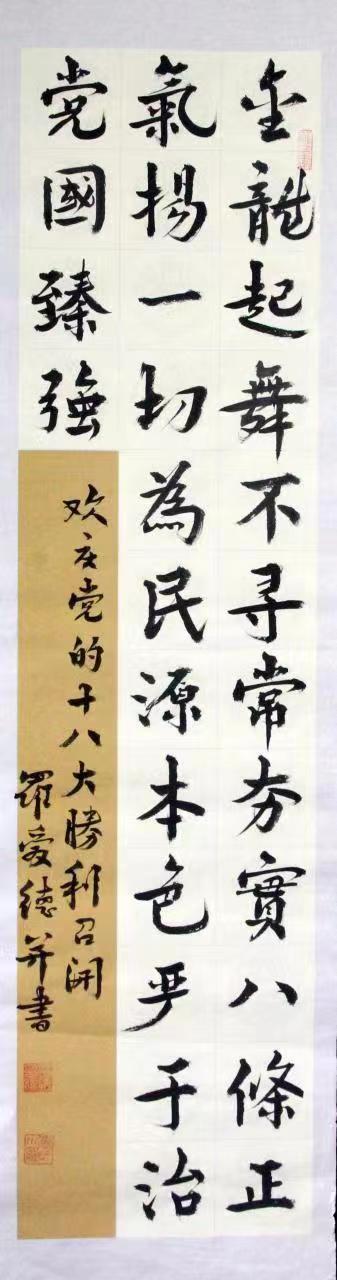 金龍起舞不寻常夯實八條正
氣揚一切為民源本色严于治
党國臻強
欢庆党的十八大勝利召開
羅爱德并書